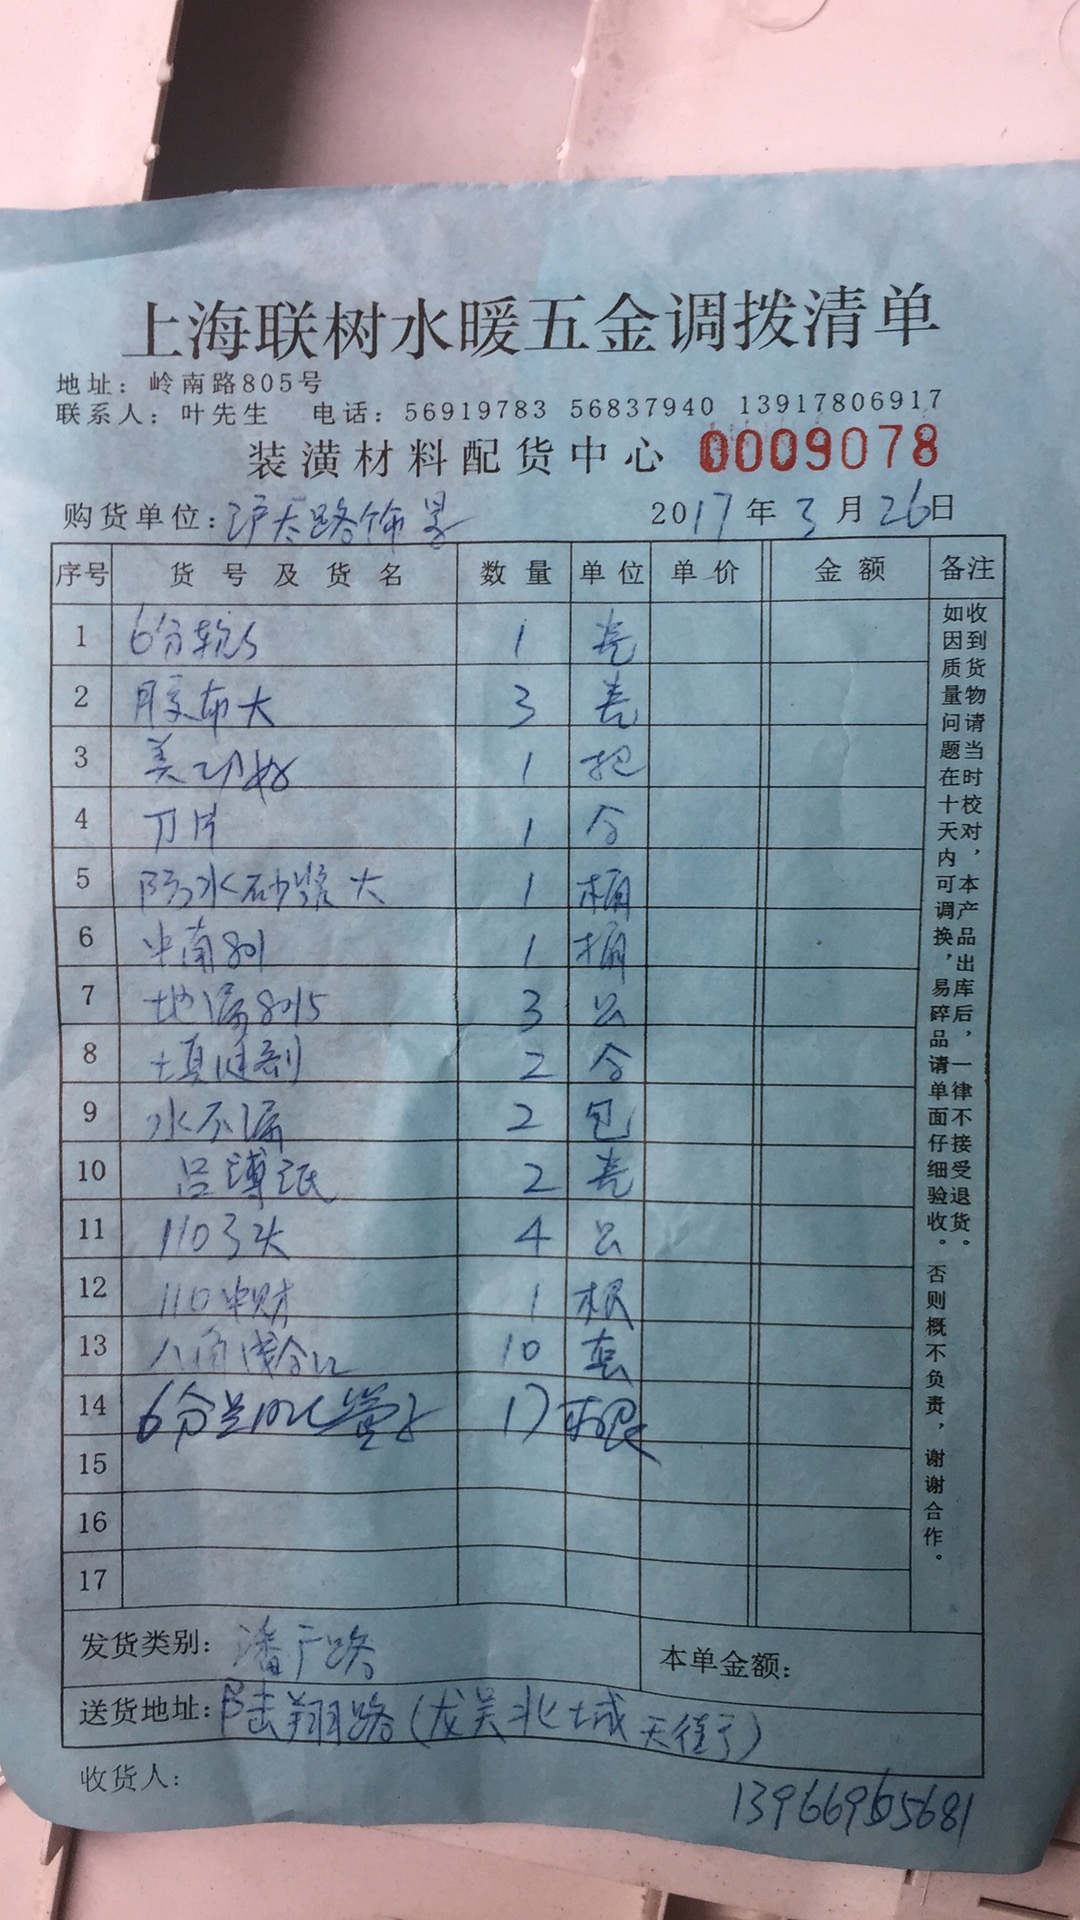 上海联树水暖五金调拨清单
地址：岭南路805号
联系人：叶先生 电话：56919783 56837940 13917806917
装潢材料配货中心 0009078
购货单位：沪太路 2017年3月26日
序号 货号及货名 数量 单位 单价 金额 备注
1 6分软 1 卷
2 胶布大 3 卷
3 美工刀 1 把
4 刀片 1 合
5 防水砂浆大 1 桶
6 中南801 1 桶
7 地漏8015 3 公
8 填缝剂 2 合
9 水不漏 2 包
10 2 卷
11 110弯头 4 公
12 110中财 1 根
13 八角 10 套
14 6分 17 根
15
16
17
收到货物请当时校对，本产品出库后，一律不接受退货。
如因质量问题在十天内可调换，易碎品请单面仔细验收。否则概不负责，谢谢合作。
发货类别：潘广路 本单金额：
送货地址：陆翔路（龙吴北城天街）
收货人：
13966965681